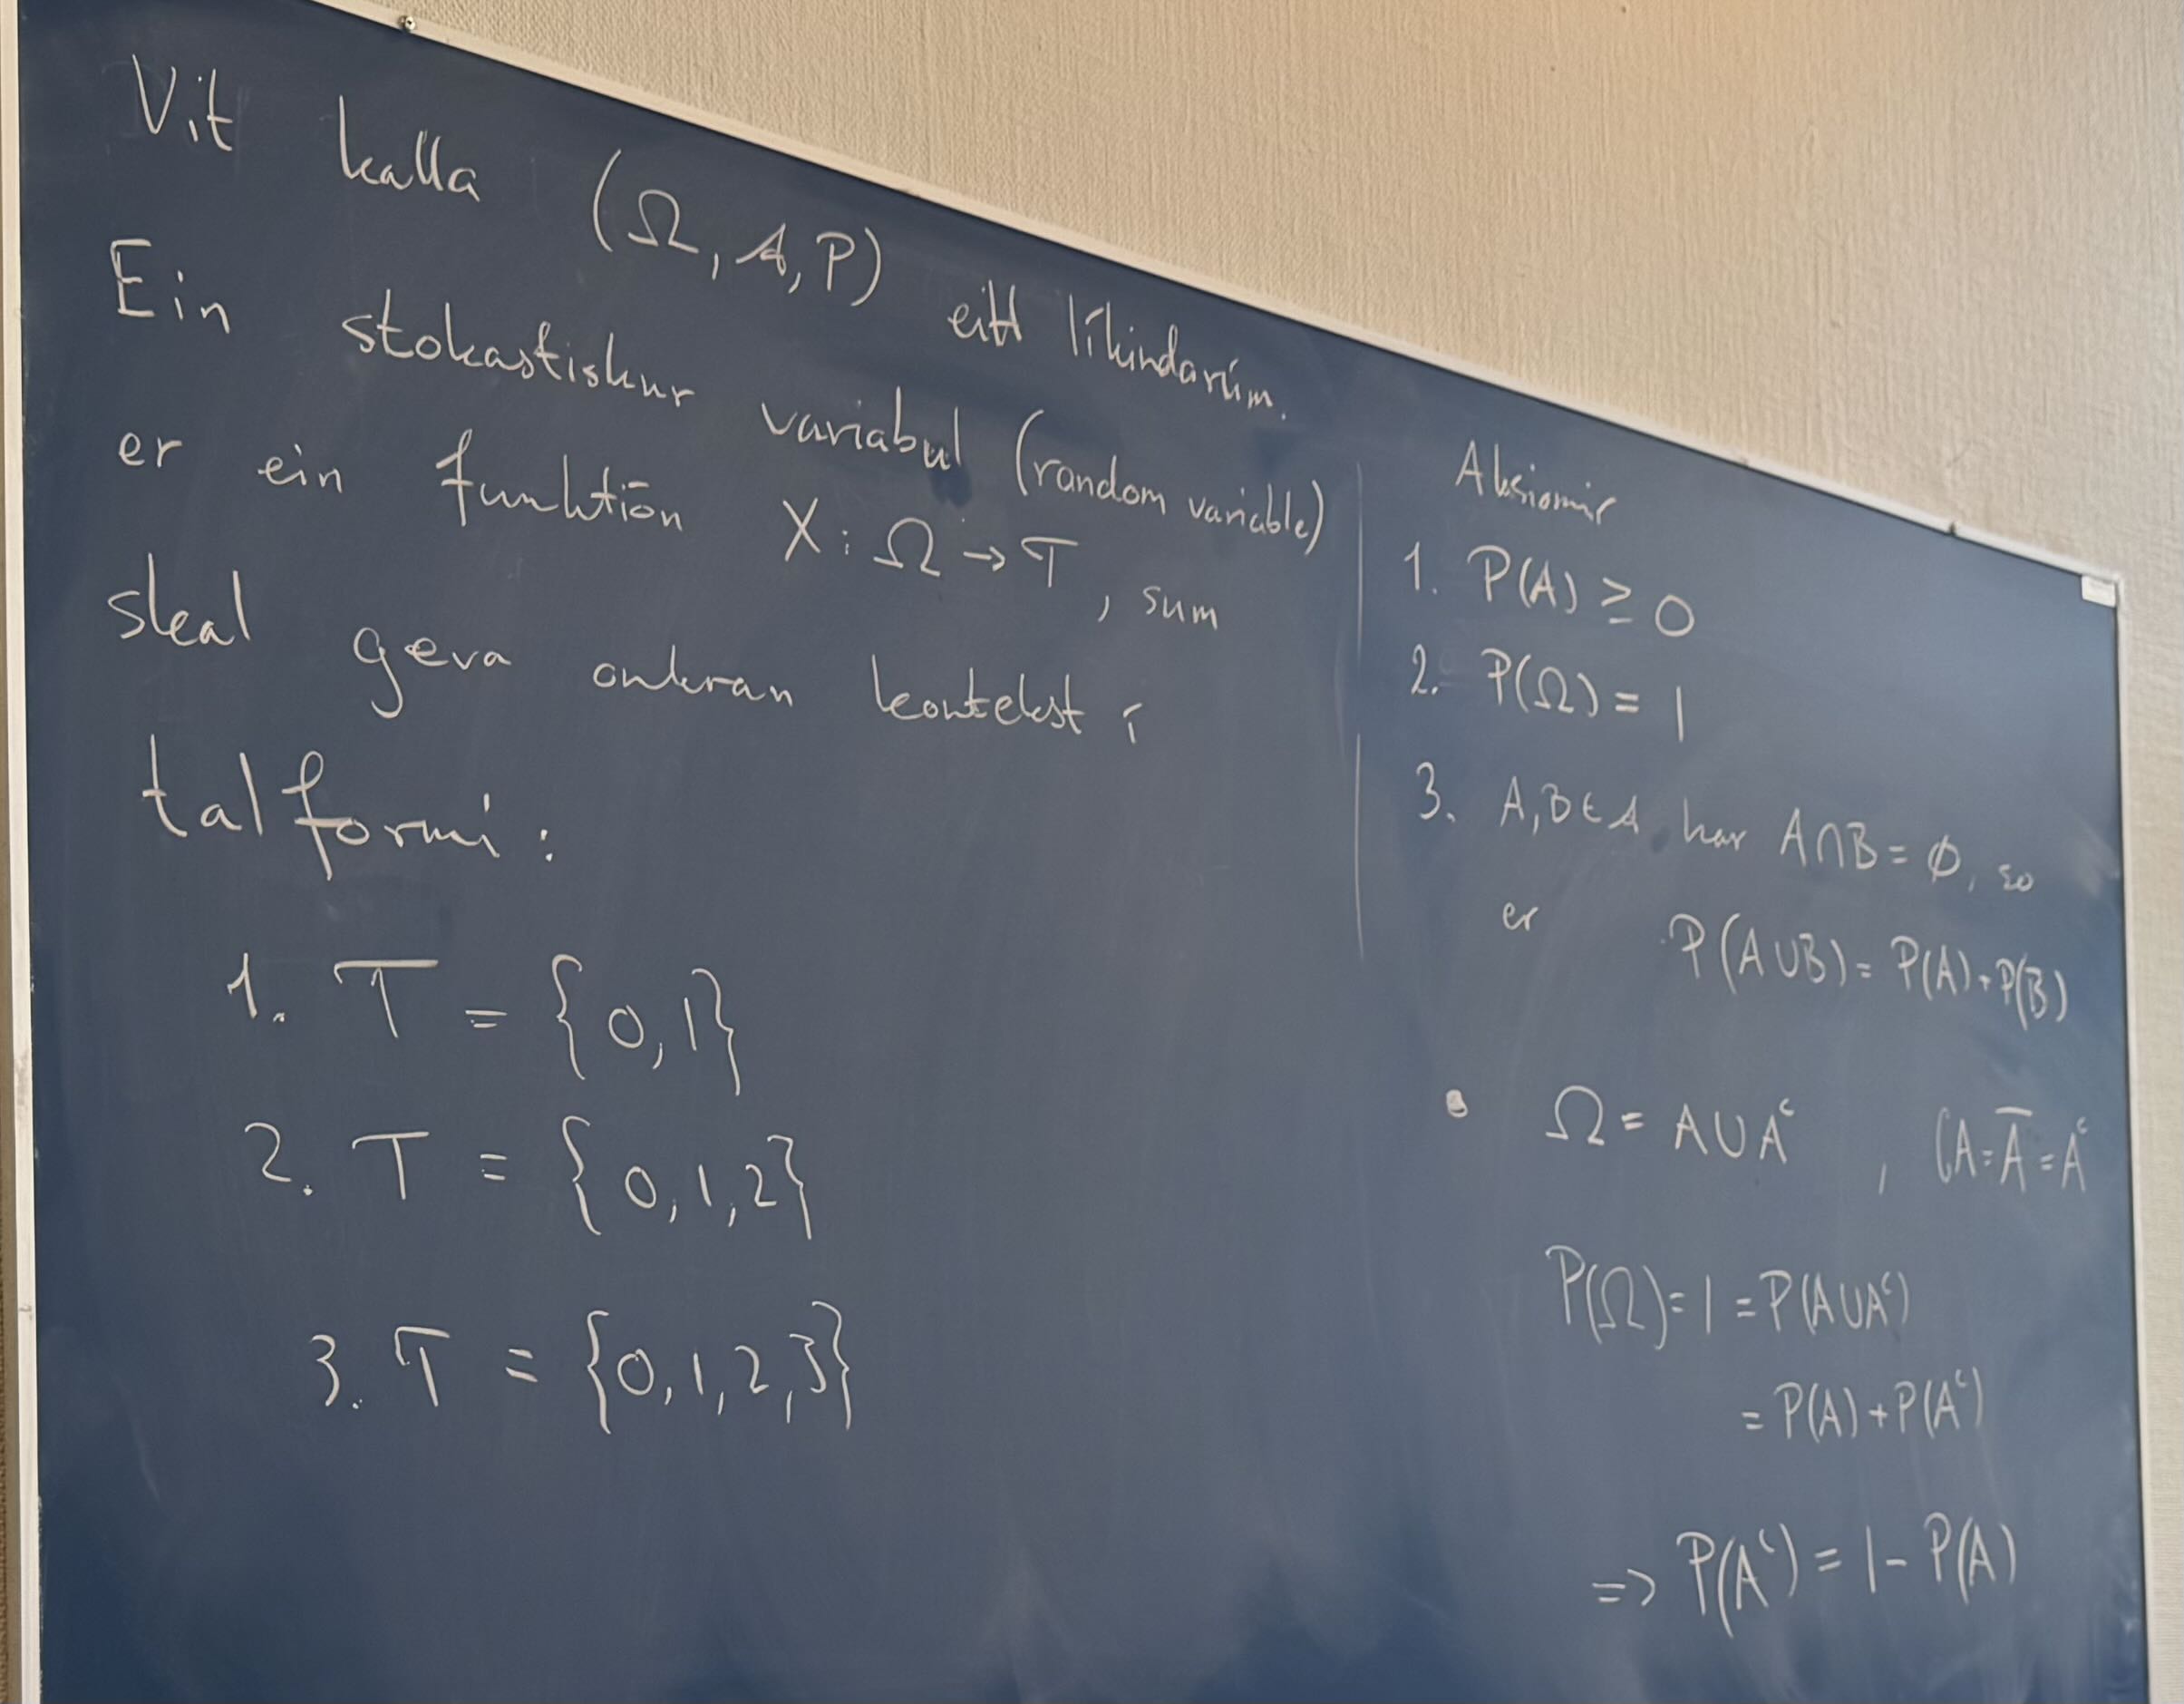 Vit kalla (Ω, 𝒜, P) eitt líkindarúm.
Ein stokastiskur variabul (random variable)
er ein funktión X: Ω → T, sum
skal geva onkran kontekst í
talformi:
1. T = {0,1}
2. T = {0,1,2}
3. T = {0,1,2,3}
Aksiomir
1. P(A) ≥ 0
2. P(Ω) = 1
3. A,B ∈ 𝒜 har A∩B = ∅, so
er P(A∪B) = P(A)+P(B)
• Ω = A∪Aᶜ , ∁A = A̅ = Aᶜ
P(Ω) = 1 = P(A∪Aᶜ)
= P(A) + P(Aᶜ)
=> P(Aᶜ) = 1 - P(A)